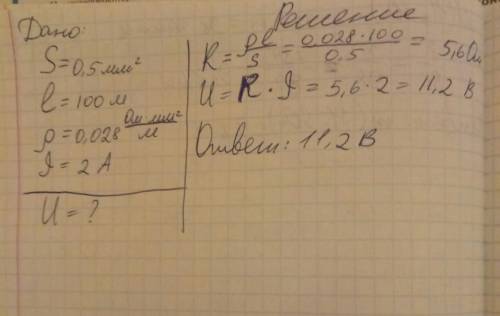 Решение
Дано:
S = 0,5 мм²
l = 100 м
ρ = 0,028 Ом·мм²/м
I = 2 А
U = ?
R = ρl/S = 0,028·100/0,5 = 5,6 Ом
U = R·I = 5,6·2 = 11,2 В
Ответ: 11,2 В